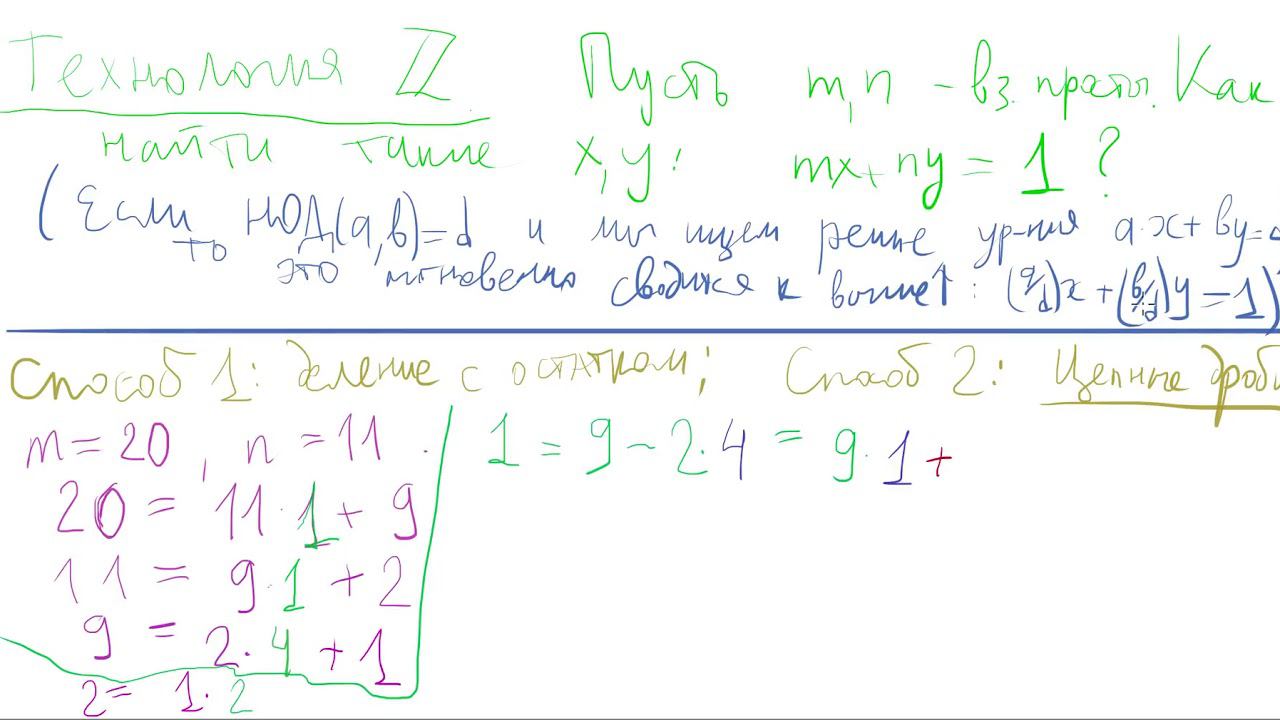 Технология ℤ Пусть m, n - вз. просты. Как
найти такие x, y: mx + ny = 1 ?
(Если НОД(a,b)=d и мы ищем решение ур-ния a·x + by=d
то это мгновенно сводится к выше↑: (a/d)x + (b/d)y = 1)
Способ 1: деление с остатком; Способ 2: Цепные дроби
m = 20, n = 11.
20 = 11·1 + 9
11 = 9·1 + 2
9 = 2·4 + 1
2 = 1·2
1 = 9 - 2·4 = 9·1 +